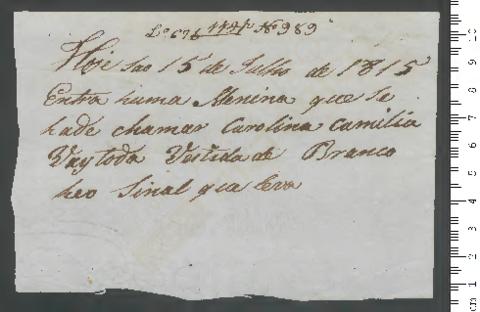 Lº 676 Nº 989
Hoje sao 15 de Julho de 1815
Entra huma Menina que se
hade chamar Carolina Camilia
Vay toda Vestida de Branco
heo Sinal que leva
cm 1 2 3 4 5 6 7 8 9 10